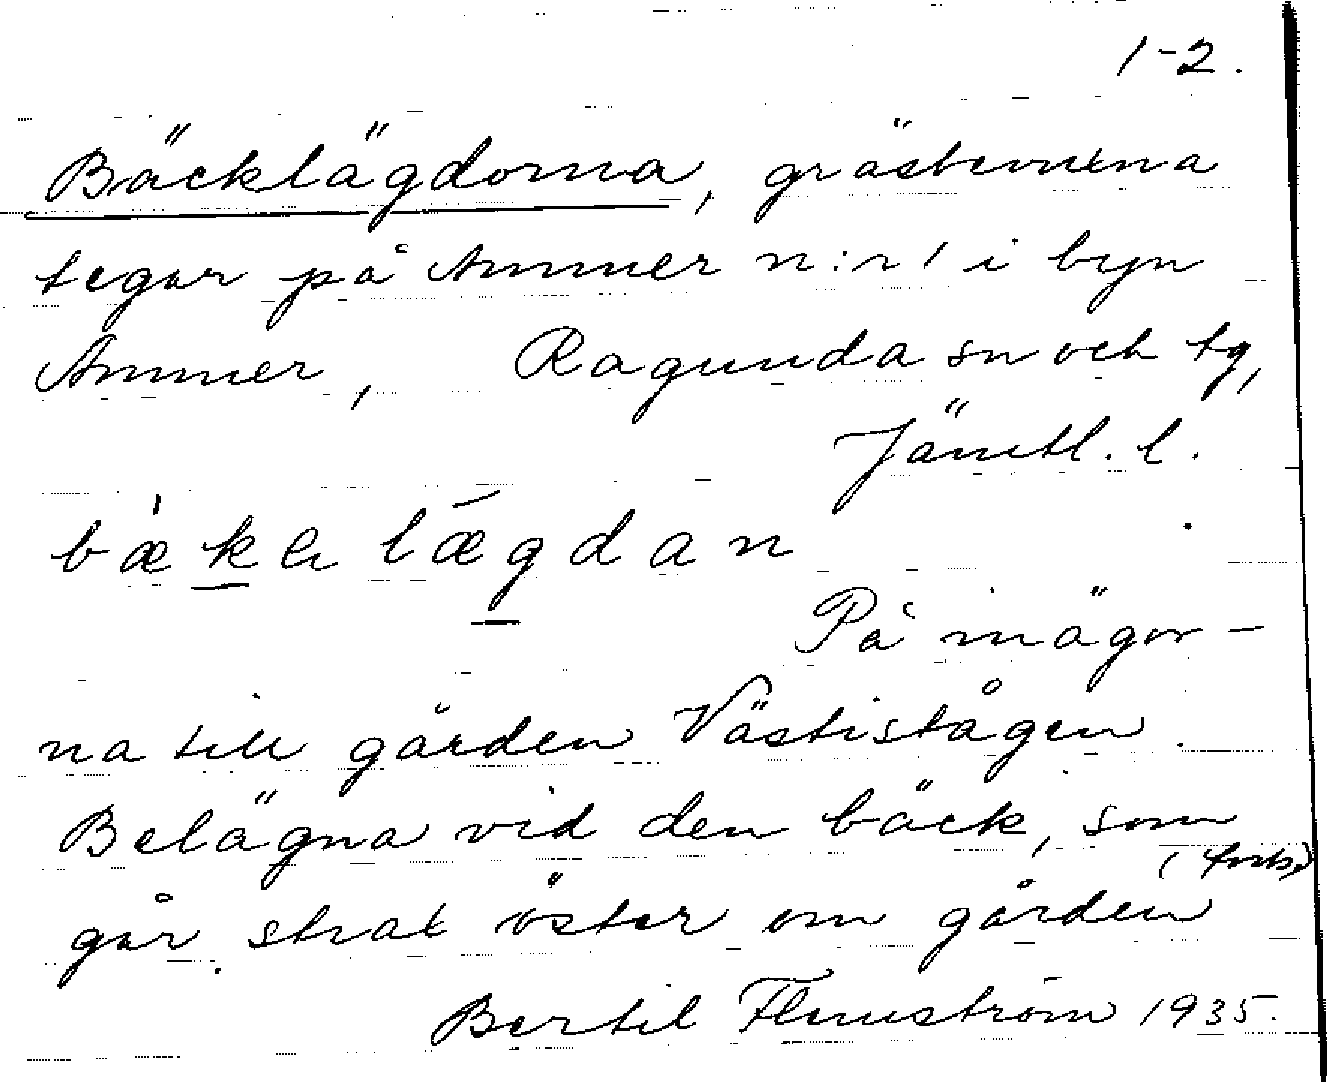 1-2.
Bäcklägdorna, gräsbevuxna
tegar på Ammer n:r 1 i byn
Ammer, Ragunda sn och tg,
Jämtl. l.
bækli lægdan
På inägor-
na till gården Västistågen.
Belägna vid den bäck, som
går strax öster om gården (forts.)
Bertil Flemström 1935.